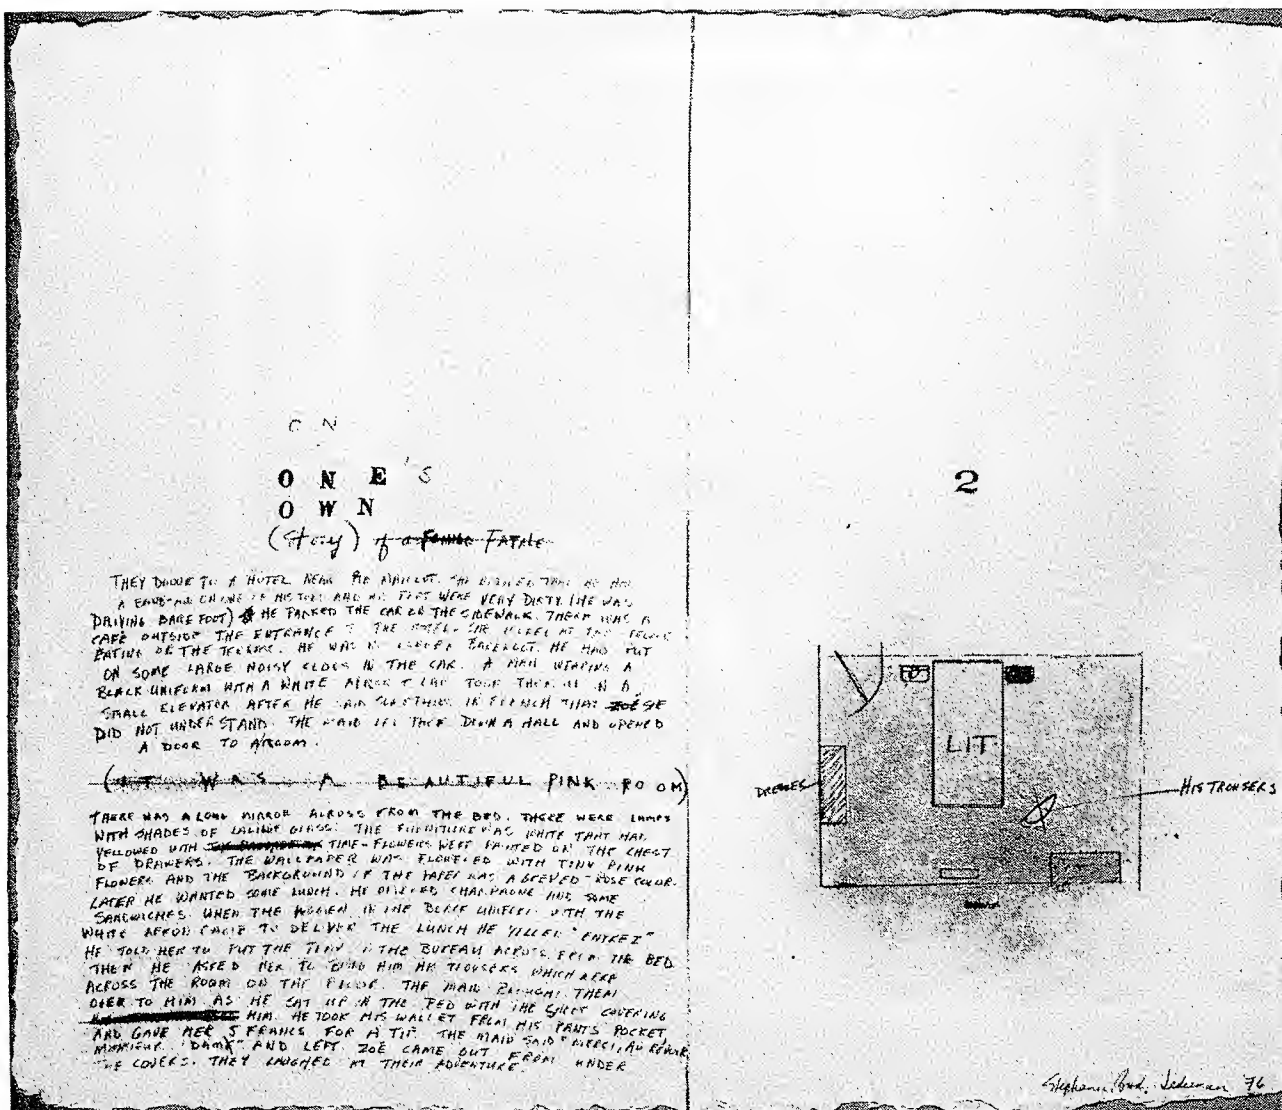 ON
ONE'S
OWN
(Story) of a Femme Fatale
THEY DROVE TO A HOTEL NEAR THAT HE HAD
A BAND-AID ON ONE OF HIS TOES AND HIS FEET WERE VERY DIRTY (HE WAS
DRIVING BAREFOOT) HE PARKED THE CAR ON THE SIDEWALK. THERE WAS A
CAFÉ OUTSIDE THE ENTRANCE THE HOTEL. SHE AT THE PEOPLE
EATING ON THE TERRASE. HE WAS NO LONGER BAREFOOT. HE HAD PUT
ON SOME LARGE NOISY CLOGS IN THE CAR. A MAID WEARING A
BLACK UNIFORM WITH A WHITE APRON & CAP TOOK THEM UP IN A
SMALL ELEVATOR AFTER HE SAID SOMETHING IN FRENCH THAT ZOÉ SHE
DID NOT UNDERSTAND. THE MAID LED THEM DOWN A HALL AND OPENED
A DOOR TO A ROOM.
(IT WAS A BEAUTIFUL PINK ROOM)
THERE WAS A LONG MIRROR ACROSS FROM THE BED. THERE WERE LAMPS
WITH SHADES OF LALIQUE GLASS. THE FURNITURE WAS WHITE THAT HAD
YELLOWED WITH TIME. FLOWERS WERE PAINTED ON THE CHEST
OF DRAWERS. THE WALLPAPER WAS FLOWERED WITH TINY PINK
FLOWERS AND THE BACKGROUND OF THE PAPER WAS A ROSE COLOR.
LATER HE WANTED SOME LUNCH. HE ORDERED CHAMPAGNE AND SOME
SANDWICHES. WHEN THE WOMEN IN THE BLACK UNIFORM WITH THE
WHITE APRON CAME TO DELIVER THE LUNCH HE YELLED "ENTREZ"
HE TOLD HER TO PUT THE TRAY ON THE BUREAU ACROSS FROM THE BED
THEN HE ASKED HER TO BRING HIM HIS TROUSERS WHICH WERE
ACROSS THE ROOM ON THE FLOOR. THE MAID BROUGHT THEM
OVER TO HIM AS HE SAT UP IN THE BED WITH THE SHEET COVERING
HIM. HE TOOK HIS WALLET FROM HIS PANTS POCKET,
AND GAVE HER 5 FRANCS FOR A TIP. THE MAID SAID "MERCI, AU REVOIR
MONSIEUR. DAME" AND LEFT. ZOÉ CAME OUT FROM UNDER
THE COVERS. THEY LAUGHED AT THEIR ADVENTURE.
2
LIT
DRESSES
HIS TROUSERS
Stephanie Brody Lederman 76